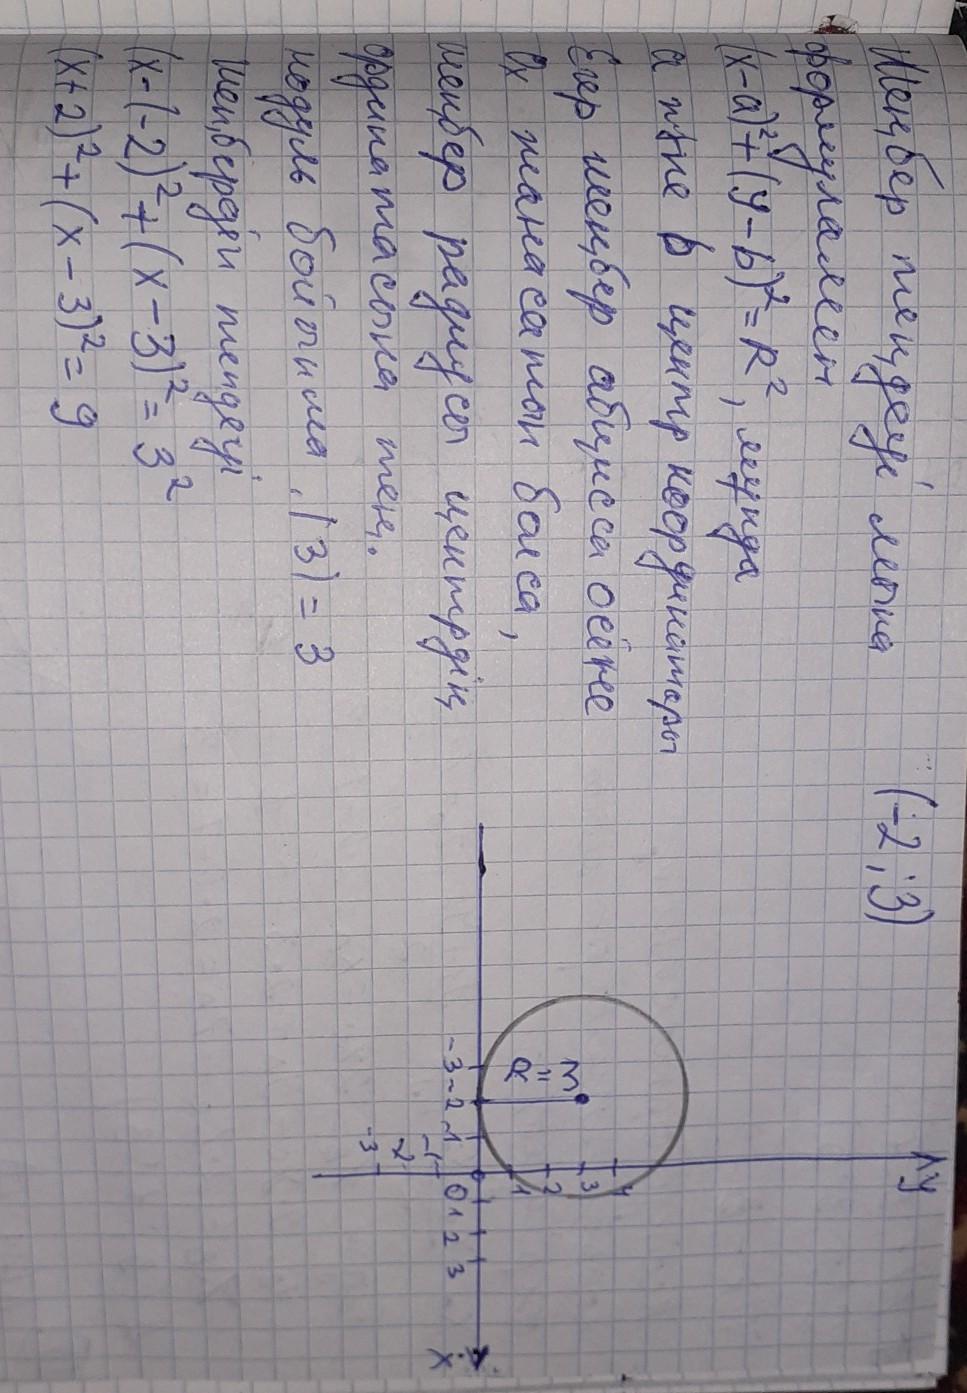 Шеңбер теңдеуі мына (-2; 3)
формуламен
(x-a)²+(y-b)²=R², мұнда
a және b центр координаторы
Егер шеңбер абцисса осіне
Ox жанасатын болса,
шеңбер радиусы центрдің
ординатасына тең.
модуль бойынша, |3)=3
Шеңбердің теңдеуі
(x-(-2)²+(x-3)²=3²
(x+2)²+(x-3)²=9
y
4
3
2
1
R=3
-3 -2 -1 0 1 2 3 x
-1
-2
-3